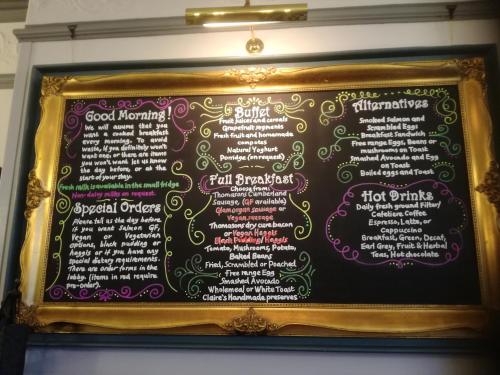 Good Morning!
We will assume that you
want a cooked breakfast
every morning. To avoid
waste, if you definitely won't
want one, or there are items
you won't want let us know
the day before, or at the
start of your stay.
Fresh milk is available in the small fridge
Non-dairy milks on request.
Special Orders
Please tell us the day before
if you want Salmon GF,
Vegan or Vegetarian
options, black pudding or
haggis or if you have any
special dietary requirements.
There are order forms in the
lobby. (items in red require
pre-order).
Buffet
Fruit juices and cereals
Grapefruit segments
Fresh fruit and homemade
compotes
Natural Yoghurt
Porridge (on request)
Full Breakfast
Choose from:
Thomasons Cumberland
Sausage, (GF available)
Glamorgan sausage or
Vegan sausage
Thomasons dry cure bacon
or Vegan Haggis
Black Pudding / Haggis
Tomato, Mushrooms, Potato,
Baked Beans
Fried, Scrambled or Poached
free range Egg
Smashed Avocado
Wholemeal or White Toast
Claire's Handmade preserves
Alternatives
Smoked Salmon and
Scrambled Eggs
Breakfast Sandwich
Free range Eggs, Beans or
mushrooms on
Toast
Smashed Avocado and Egg
on Toast
Boiled eggs and Toast
Hot Drinks
Daily fresh ground Filter/
Cafetiere Coffee
Espresso, Latte, or
Cappuccino
Breakfast, Green, Decaf,
Earl Grey, Fruit & Herbal
Teas, Hot chocolate